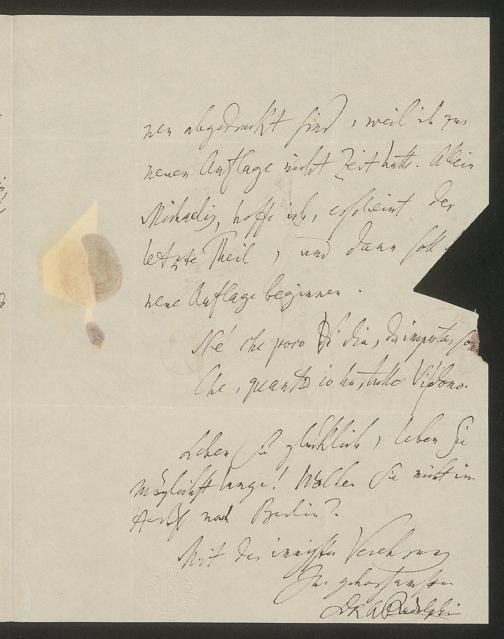 nen abgedruckt sind, weil ich zur
neuen Auflage nicht Zeit hatte. Allein
Michaelis, hoffe ich, erscheint der
letzte Theil, und dann soll
neue Auflage beginnen.
Né che poco Vi dia, da imputar son
Che, quanto io ho, tutto Vi dono.
Leben Sie glücklich, leben Sie
möglichst lange! Wollen Sie nicht im
Herbst nach Berlin?
Mit der innigsten Verehrung
Ihr gehorsamster
Dr KARudolphi